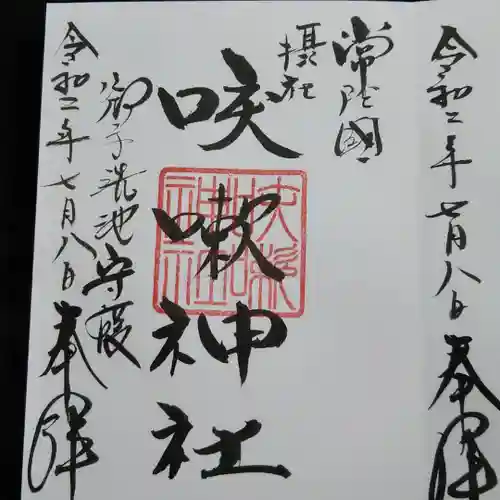 令和二年七月八日 奉拝
常陸國
摂社
咳嗽神社
御手洗池守護
令和二年七月八日 奉拝